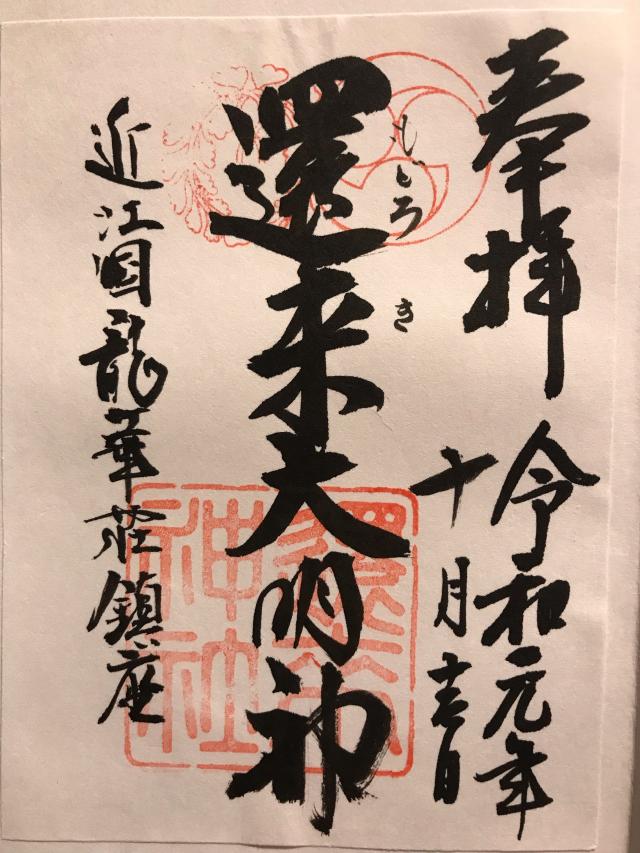 奉拝
令和元年
十月 日
還来大明神
もどろき
近江国龍華荘鎮座
還来神社